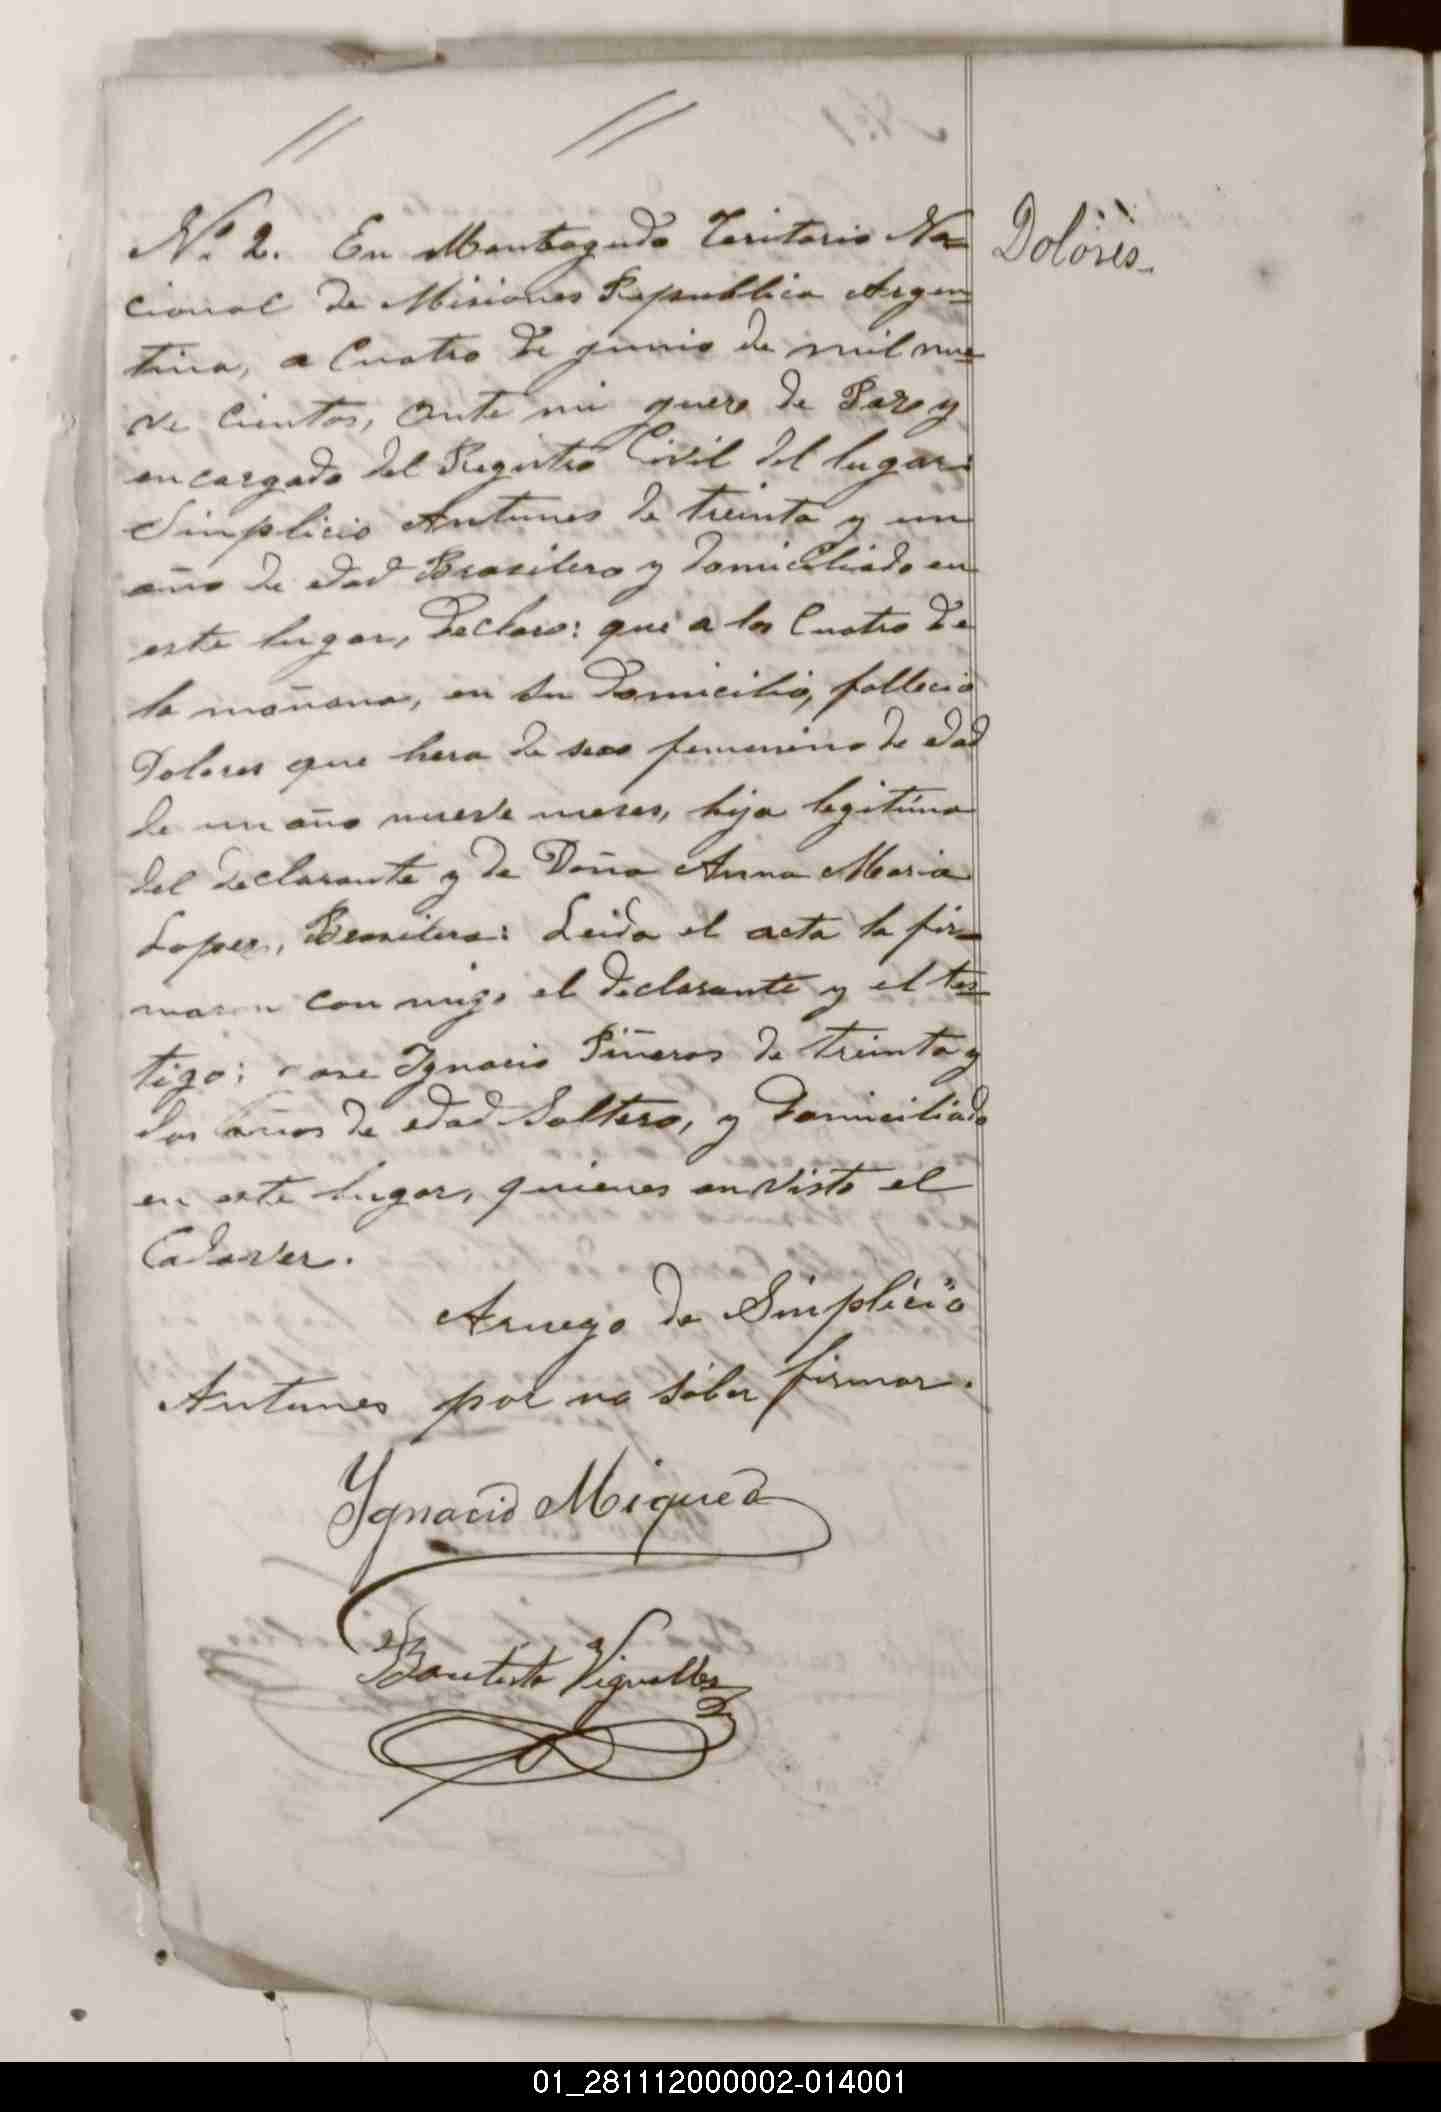 Nº 2. En Monteagudo Teritorio Na=
cional de Misiones Republica Argen=
tina, a Cuatro de junio de mil nue=
ve cientos, ante mi juez de Paz y
encargado del Registro Civil del lugar:
Simplicio Antunes de treinta y un
año de edad Brasilero y domiciliado en
este lugar, Declaro: que a las Cuatro de
la mañana, en su Domicilio, fallecio
Dolores que hera de sexo femenino de edad
de un año nueve meses, hija legitima
del declarante y de Doña Anna Maria
Lopes, Brasilera: Leida el acta la fir=
maron con migo el declarante y el tes=
tigo; Jose Ygnacio Piñeros de treinta y
dos años de edad Soltero, y Domiciliado
en este lugar, quienes an visto el
Cadaver.
Aruego de Simplicio
Antunes por no saber firmar.
Ygnacio
Bautista
Dolores.
01_281112000002-014001